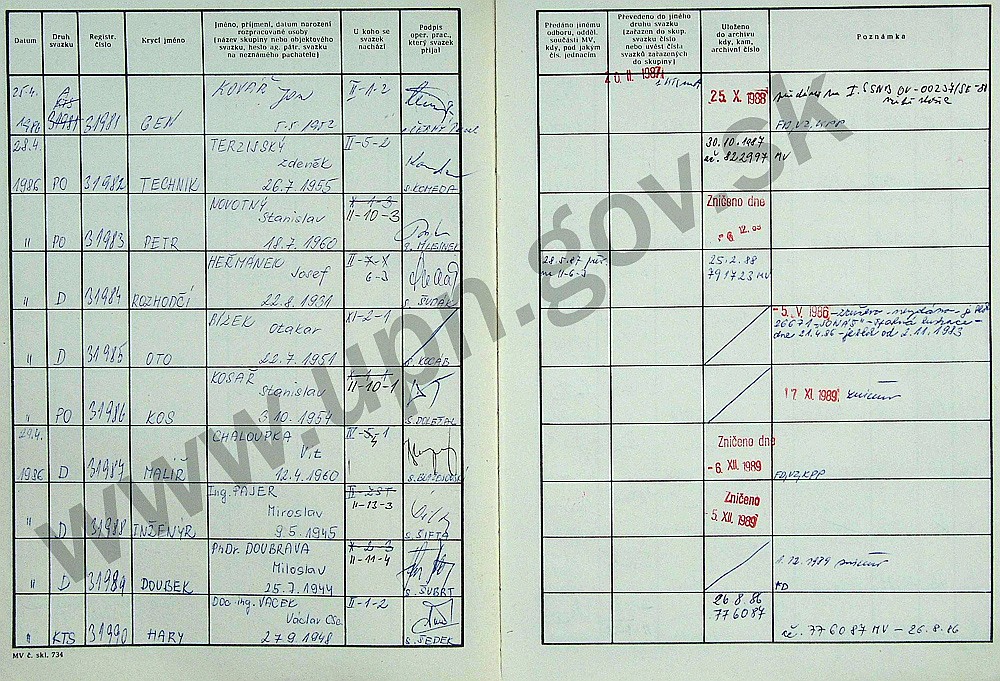 Datum
Druh svazku
Registr. číslo
Krycí jméno
Jméno, příjmení, datum narození
rozpracované osoby
(název skupiny nebo objektového
svazku, heslo ag. pátr. svazku
na neznámého pachatele)
U koho se
svazek
nachází
Podpis
oper. prac.,
který svazek
přijal
Předáno jinému
odboru, odděl.
součásti MV,
kdy, pod jakým
čís. jednacím
Převedeno do jiného
druhu svazku
(zařazen do skup.
svazku číslo
nebo uvést čísla
svazků zařazených
do skupiny)
Uloženo
do archivu
kdy, kam,
archivní číslo
Poznámka
25.4. A KOVÁŘ II-1-2
KTS Jan
1986 31981 31981 GEN 5.5.1952 ČERNÝ
20. II. 1987
25. X. 1988
FD,VZ,KPP
28.4. TERZIJSKÝ II-5-2
Zdeněk
1986 PO 31982 TECHNIK 26.7.1955 s.KOMEDA
30.10.1987
ač. 822997 MV
NOVOTNÝ X-1-3
Stanislav II-10-3
" PO 31983 PETR 18.7.1960
Zničeno dne
HEŘMÁNEK II-7-X
Josef 6-3
" D 31984 ROZHODČÍ 22.8.1931
28.5.87
na II-6-3
25.2.88
791723 MV
BÍZEK XI-2-1
Otakar
" D 31985 OTO 22.7.1951 s.KOCÁB
-5. V. 1986
26671 "JONÁŠ"
dne 21.4.86 od 2.11.1983
KOSAŘ
Stanislav II-10-1
" PO 31986 KOS 3.10.1954 s.DOLEŽAL
17 XI. 1989
29.4. CHALOUPKA
Vít
1986 D 31987 MALÍŘ 12.4.1960
Zničeno dne
-6. XII. 1989
FD,VZ,KPP
Ing. PAJER
Miroslav II-13-3
" D 31988 INŽENÝR 9.5.1945 s.ŠIFTA
Zničeno
-5. XII. 1989
PhDr. DOUBRAVA X-2-3
Miloslav II-11-4
" D 31989 DOUBEK 25.7.1944 s.ŠUBRT
1.12.1989
Doc. ing. VACEK II-1-2
Václav CSc.
" KTS 31990 HARY 27.9.1948 s.ŠEDEK
26.8.86
776087
ač. 776087 MV – 26.8.86
MV č. skl. 734
www.upn.gov.sk